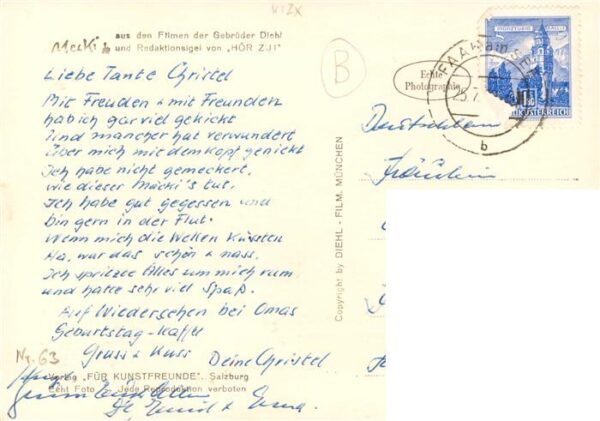 KIZX
aus den Filmen der Gebrüder Diehl
Mecki
und Redaktionsigel von „HÖR ZU!"
Liebe Tante Christel
Mit Freuden + mit Freunden
hab ich gar viel gekickt
Und mancher hat verwundert
Über mich mit dem Kopf genickt
Ich habe nicht gemeckert,
wie dieser Mäcki's tut.
Ich habe gut gegessen und
bin gern in der Flut.
Wenn mich die Wellen küssten
Ha, war das schön + nass.
Ich spritzte Alles um mich rum
und hatte sehr viel Spaß.
Auf Wiedersehen bei Omas
Geburtstag-Kaffee
Gruss + Kuss
Deine Christel
Nr. 63
Verlag „FÜR KUNSTFREUNDE", Salzburg
Echt Foto
Jede Reproduktion verboten
Copyright by DIEHL - FILM, MÜNCHEN
B
Echte
Photographie
FAAK am
25.7.
b
ÖSTERREICH
Deutschland
Fräulein